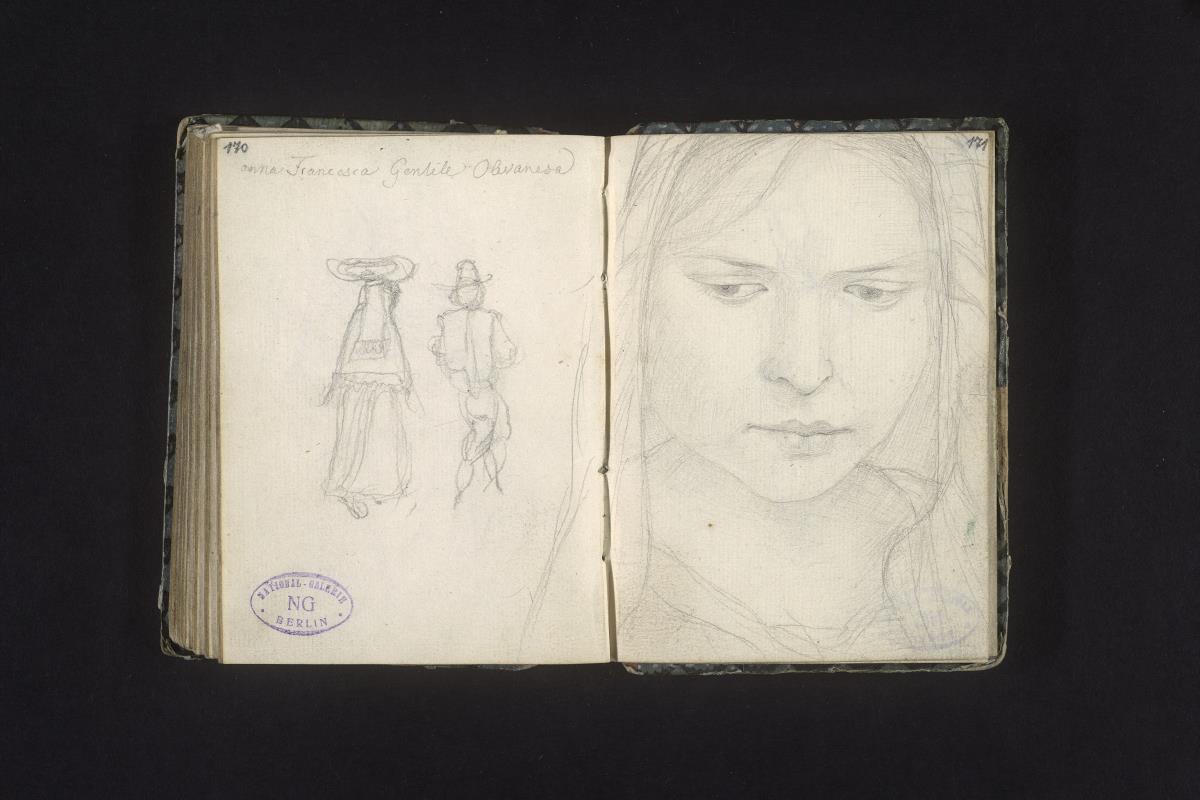 170
anna Francesca Gentile Olevanesa
NATIONAL-GALERIE
NG
BERLIN
171